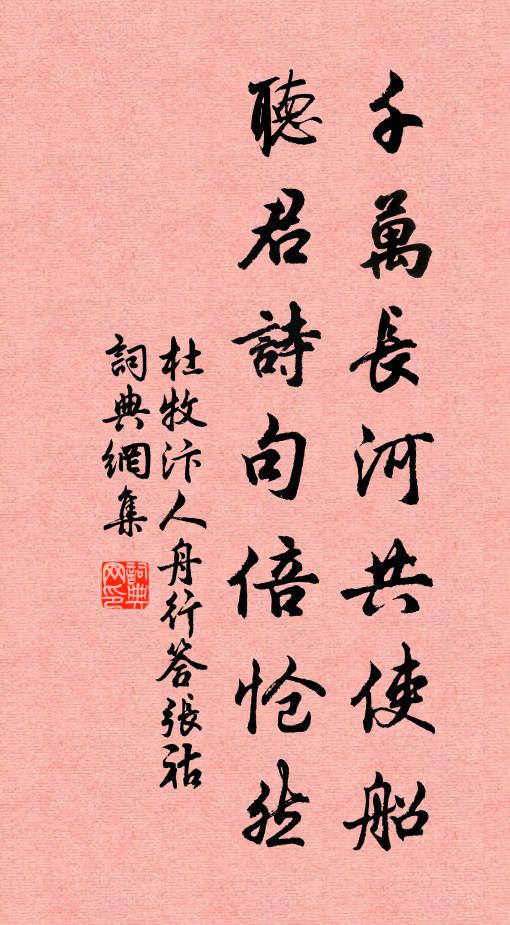 千萬長河共使船
聽君詩句倍怆然
杜牧汴人舟行答張祜
詞典網集
詞典网印